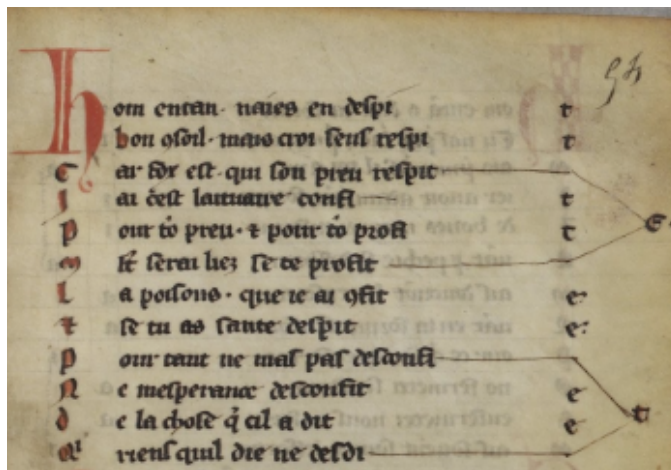 54
Hom entan. naies en despi t
bon 9soil. mais croi sens respi t
C ar fox est. qui son preu respit
J ai c̄est laituaire confi t e.
P our tō preu. & pour tō profi t
M lt̄ serai liez se te profit
L a poisons. que ie ai 9fit e.
& se tu as sante despit e.
P our tant ne mas pas desconfi
N e mesperance desconfit e t
d e la chose q̄ cil a dit e
riens quil die ne desdi